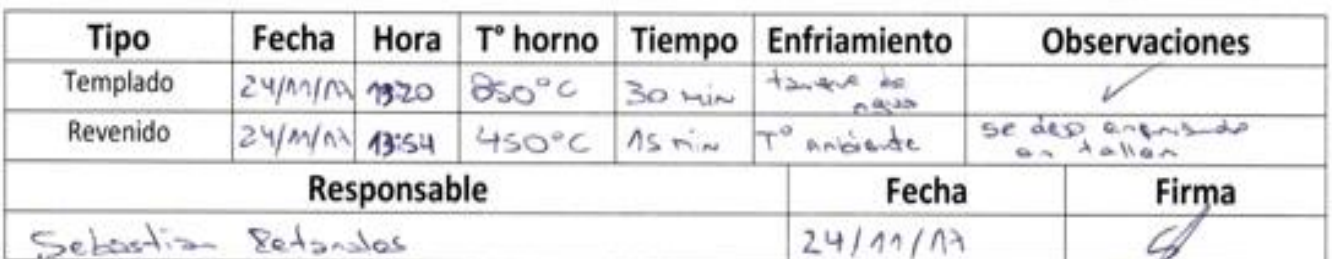 Tipo Fecha Hora T° horno Tiempo Enfriamiento Observaciones
Templado 24/11/17 13:20 850°C 30 min tanque de agua
Revenido 24/11/17 13:54 450°C 15 min T° ambiente se dejo enfriando en taller
Responsable Fecha Firma
Sebastian 24/11/17